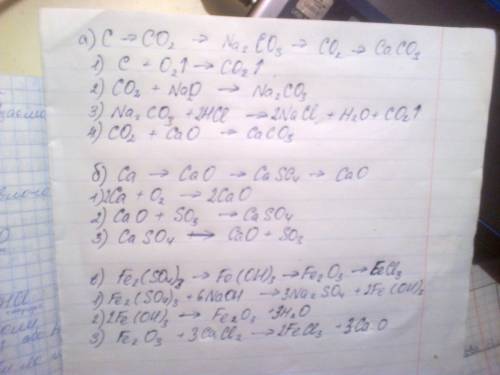 а) C → CO2 → Na2CO3 → CO2 → CaCO3
1) C + O2↑ → CO2↑
2) CO2 + Na2O → Na2CO3
3) Na2CO3 + 2HCl → 2NaCl + H2O + CO2↑
4) CO2 + CaO → CaCO3
б) Ca → CaO → CaSO4 → CaO
1) 2Ca + O2 → 2CaO
2) CaO + SO3 → CaSO4
3) CaSO4 ⟷ CaO + SO3
в) Fe2(SO4)3 → Fe(OH)3 → Fe2O3 → FeCl3
1) Fe2(SO4)3 + 6NaOH → 3Na2SO4 + 2Fe(OH)3
2) 2Fe(OH)3 → Fe2O3 + 3H2O
3) Fe2O3 + 3CaCl2 → 2FeCl3 + 3CaO